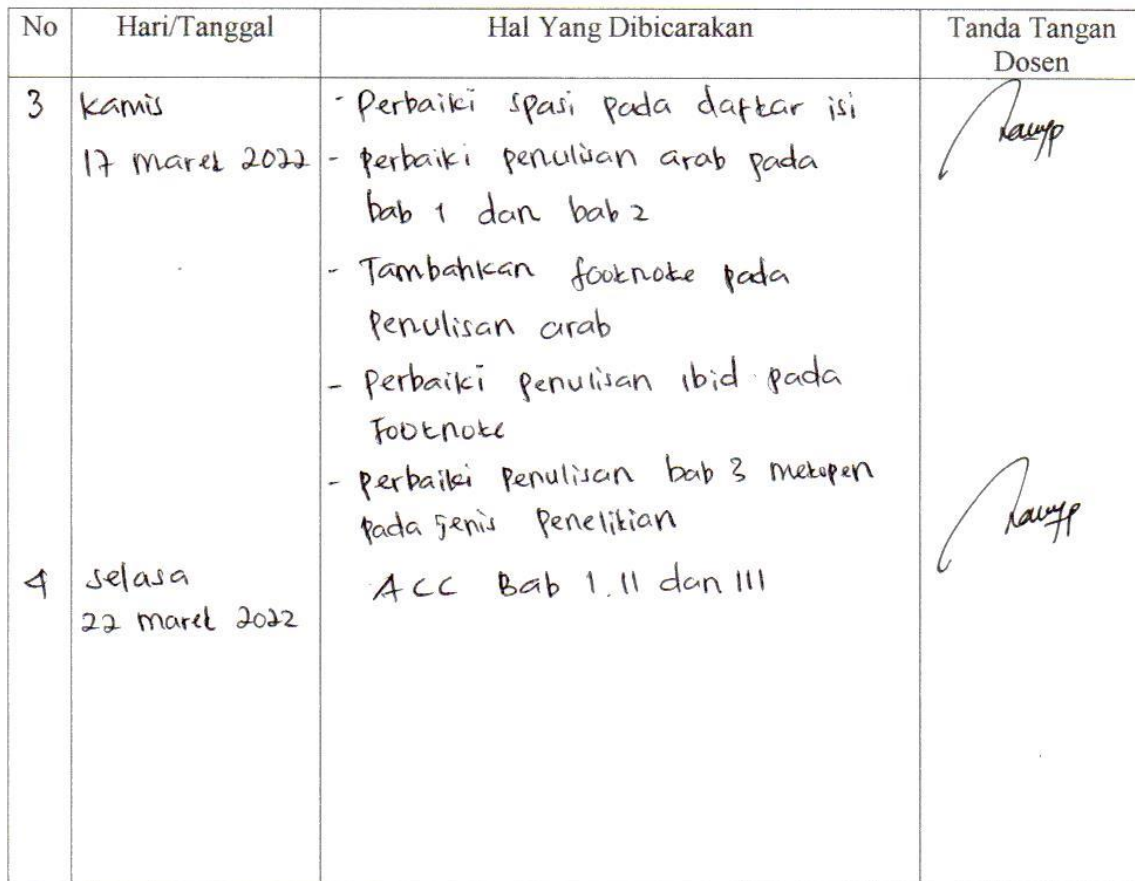 No Hari/Tanggal Hal Yang Dibicarakan Tanda Tangan
Dosen
3 Kamis - Perbaiki spasi pada daftar isi
17 maret 2022 - perbaiki penulisan arab pada
bab 1 dan bab 2
- Tambahkan footnote pada
Penulisan arab
- Perbaiki penulisan ibid pada
Footnote
- perbaiki Penulisan bab 3 metopen
pada jenis Penelitian
4 selasa ACC Bab 1.11 dan III
22 maret 2022